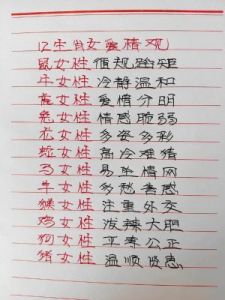 12生肖女爱情观
鼠女性 循规蹈矩
牛女性 冷静温和
虎女性 爱情分明
兔女性 情感脆弱
龙女性 多姿多彩
蛇女性 高冷难猜
马女性 易牵情网
羊女性 多愁善感
猴女性 注重外交
鸡女性 泼辣大胆
狗女性 平等公正
猪女性 温顺贤惠